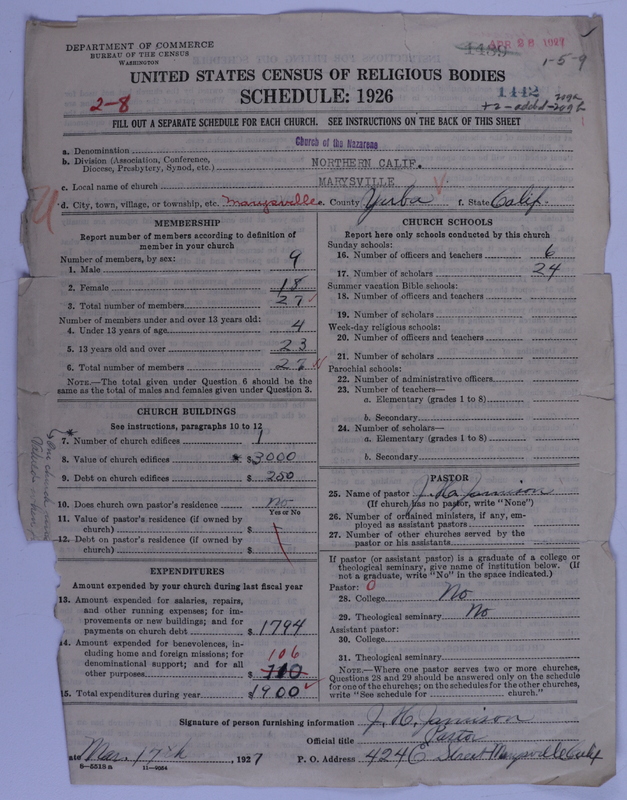 DEPARTMENT OF COMMERCE
BUREAU OF THE CENSUS
WASHINGTON
1439
APR 28 1927
1-5-9
UNITED STATES CENSUS OF RELIGIOUS BODIES
SCHEDULE: 1926
2-8
1442
FILL OUT A SEPARATE SCHEDULE FOR EACH CHURCH. SEE INSTRUCTIONS ON THE BACK OF THIS SHEET
a. Denomination Church of the Nazarene
b. Division (Association, Conference, Diocese, Presbytery, Synod, etc.) NORTHERN CALIF.
c. Local name of church MARYSVILLE
d. City, town, village, or township, etc. Marysville e. County Yurba f. State Calif.
MEMBERSHIP
Report number of members according to definition of
member in your church
Number of members, by sex:
1. Male 9
2. Female 18
3. Total number of members 27
Number of members under and over 13 years old:
4. Under 13 years of age 4
5. 13 years old and over 23
6. Total number of members 27
NOTE.—The total given under Question 6 should be the
same as the total of males and females given under Question 3.
CHURCH BUILDINGS
See instructions, paragraphs 10 to 12
7. Number of church edifices 1
8. Value of church edifices $3000
9. Debt on church edifices $ 250
10. Does church own pastor's residence No
Yes or No
11. Value of pastor's residence (if owned by
church) $
12. Debt on pastor's residence (if owned by
church) $
EXPENDITURES
Amount expended by your church during last fiscal year
13. Amount expended for salaries, repairs,
and other running expenses; for im-
provements or new buildings; and for
payments on church debt $ 1794
14. Amount expended for benevolences, in-
cluding home and foreign missions; for
denominational support; and for all
other purposes $ 110 106
15. Total expenditures during year $1900
CHURCH SCHOOLS
Report here only schools conducted by this church
Sunday schools:
16. Number of officers and teachers 6
17. Number of scholars 24
Summer vacation Bible schools:
18. Number of officers and teachers
19. Number of scholars
Week-day religious schools:
20. Number of officers and teachers
21. Number of scholars
Parochial schools:
22. Number of administrative officers
23. Number of teachers—
a. Elementary (grades 1 to 8)
b. Secondary
24. Number of scholars—
a. Elementary (grades 1 to 8)
b. Secondary
PASTOR
25. Name of pastor J. H. Jamison
(If church has no pastor, write "None")
26. Number of ordained ministers, if any, em-
ployed as assistant pastors
27. Number of other churches served by the
pastor or his assistants
If pastor (or assistant pastor) is a graduate of a college or
theological seminary, give name of institution below. (If
not a graduate, write "No" in the space indicated.)
Pastor: 0
28. College No
29. Theological seminary No
Assistant pastor:
30. College
31. Theological seminary
NOTE.—Where one pastor serves two or more churches,
Questions 28 and 29 should be answered only on the schedule
for one of the churches; on the schedules for the other churches,
write "See schedule for church."
Signature of person furnishing information J. H. Jamison
Official title Pastor
ate Mar. 17th, 1927 P. O. Address 424 E Street Marysville Calif
8—5518 a 11—9064